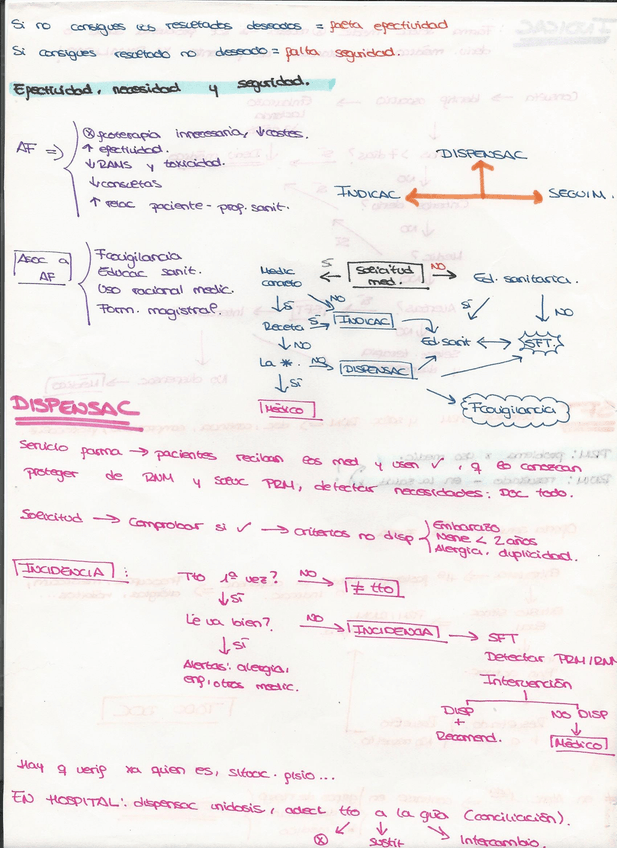 Si no consigues los resultados deseados = falta efectividad
Si consigues resultado no deseado = falta seguridad.
Efectividad, necesidad y seguridad.
AF ⇒
ⓧ fcoterapia innecesaria, ↓ costes.
↑ efectividad.
↓ RAMS y toxicidad.
↓ consultas
↑ relac paciente - prof. sanit.
DISPENSAC
INDICAC
SEGUIM.
Asoc a AF
Fcovigilancia
Educac sanit.
Uso racional medic.
Form. magistral.
Medic concreto
S
Solicitud med.
NO
Ed. sanitaria.
Sí
NO
Sí
NO
Receta
S
INDICAC
Ed sanit
SFT.
NO
La *.
NO
DISPENSAC
Sí
Médico
Fcovigilancia
DISPENSAC
Servicio farma → pacientes reciban los med y usen ✓, q lo conozcan
proteger de RNM y soluc PRM, detectar necesidades: Doc todo.
Solicitud → Comprobar si ✓ → criterios no disp
Embarazo
Nene < 2 años
Alergia, duplicidad.
INCIDENCIA :
Tto 1ª vez?
NO
≠ tto
↓ Sí
Le va bien?
NO
INCIDENCIA → SFT
↓ Sí
Detectar PRM/RNM
Alertas: alergia,
enf, otros medic.
Intervención
DISP
+
Recomend.
NO DISP
Médico
Hay q verif xa quien es, situac. fisio...
EN HOSPITAL: dispensac unidosis, adecl tto a la guía (conciliación).
ⓧ
sustit
Intercambio.